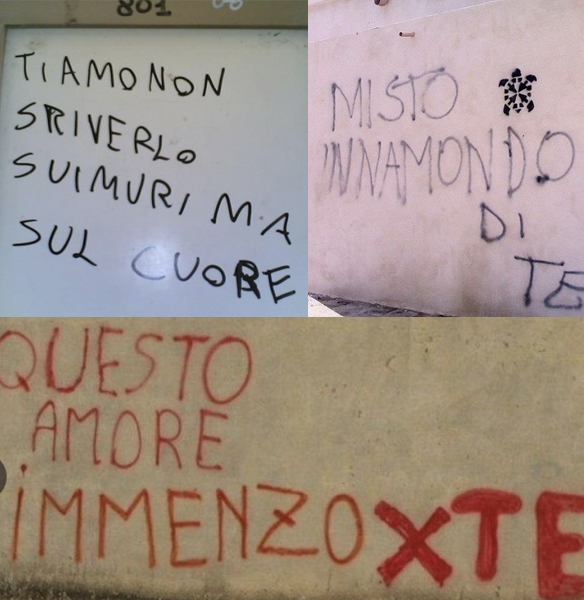 801
TIAMONON
SRIVERLO
SUIMURI MA
SUL CUORE
MISTO
INNAMONDO
DI
TE
QUESTO
AMORE
iMMENZO XTE